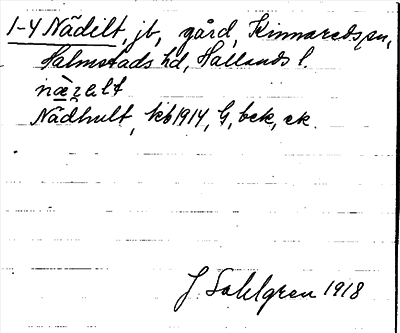 1-4 Nädilt, jb, gård, Kinnareds sn,
Halmstads hd, Hallands l.
næꝛelt
Nädhult, kb 1914, G, bek, ek.
J Sahlgren 1918